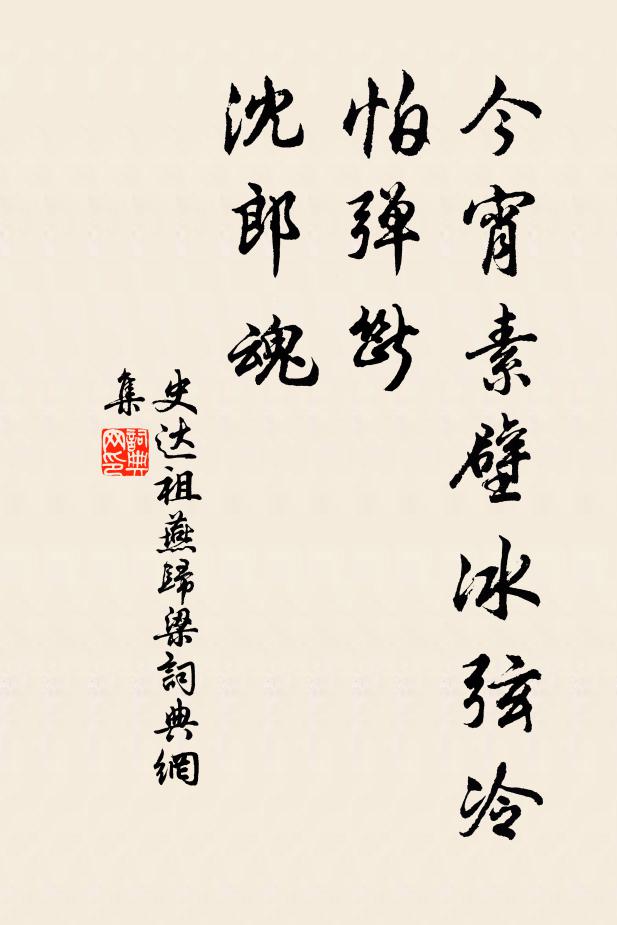 今宵素壁冰弦冷
怕弹断
沈郎魂
史达祖燕歸梁詞典網
集
詞典
网印